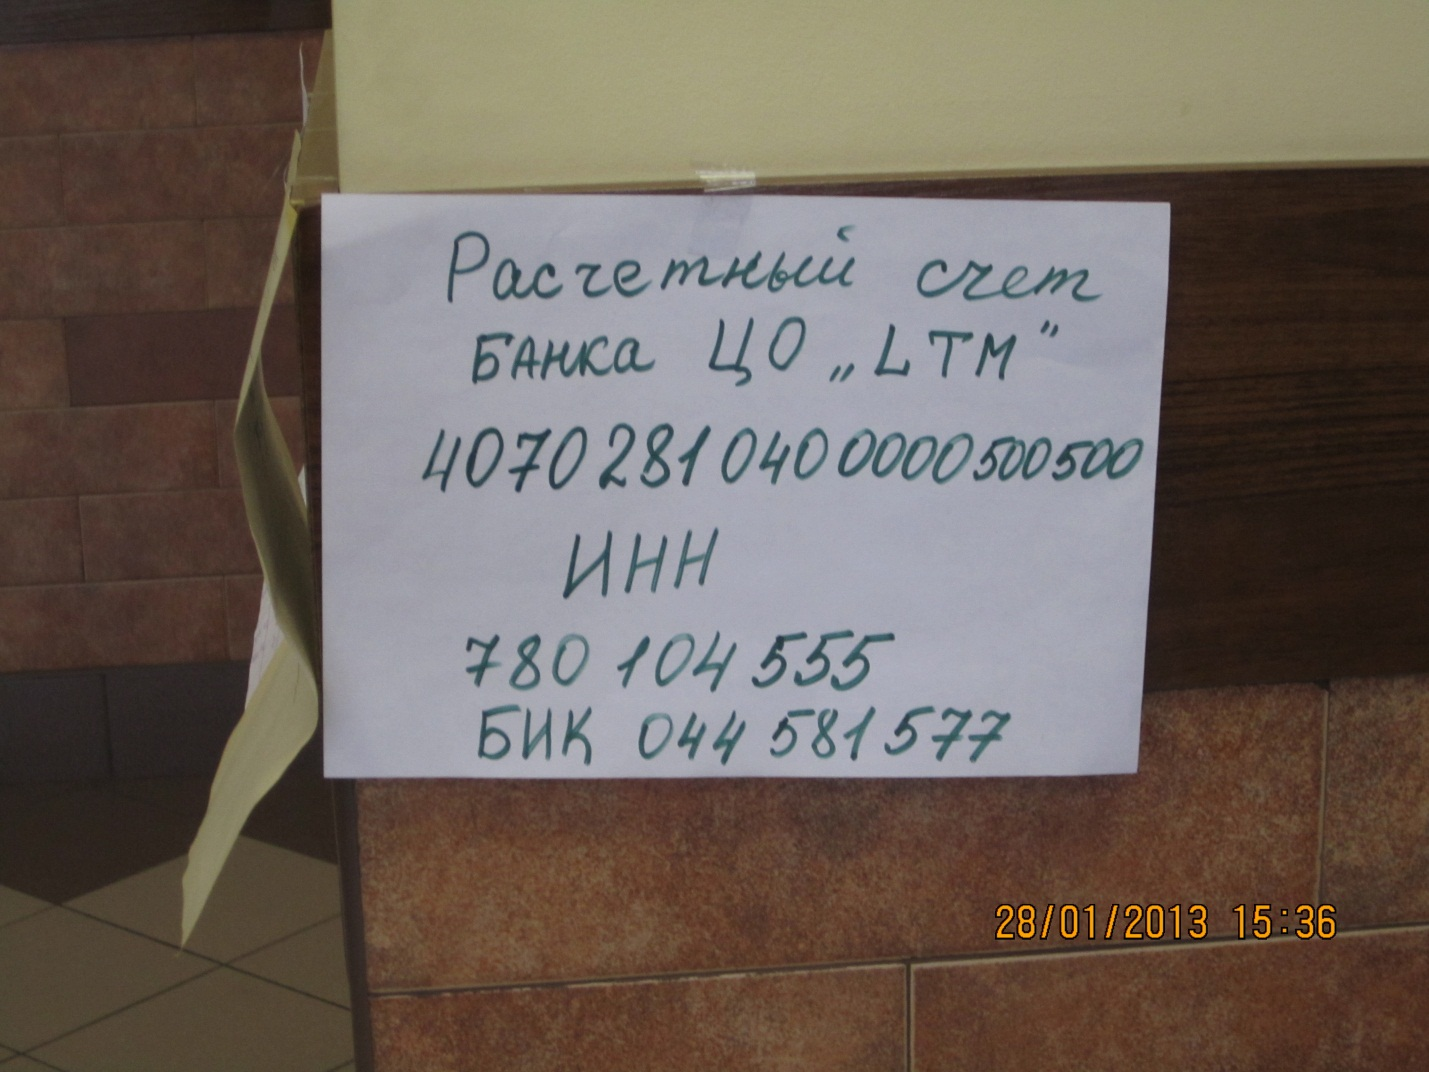 Расчетный счет
БАНКА ЦО „LTM"
40702810400000500500
ИНН
780 104 555
БИК 044 581 577
28/01/2013 15:36